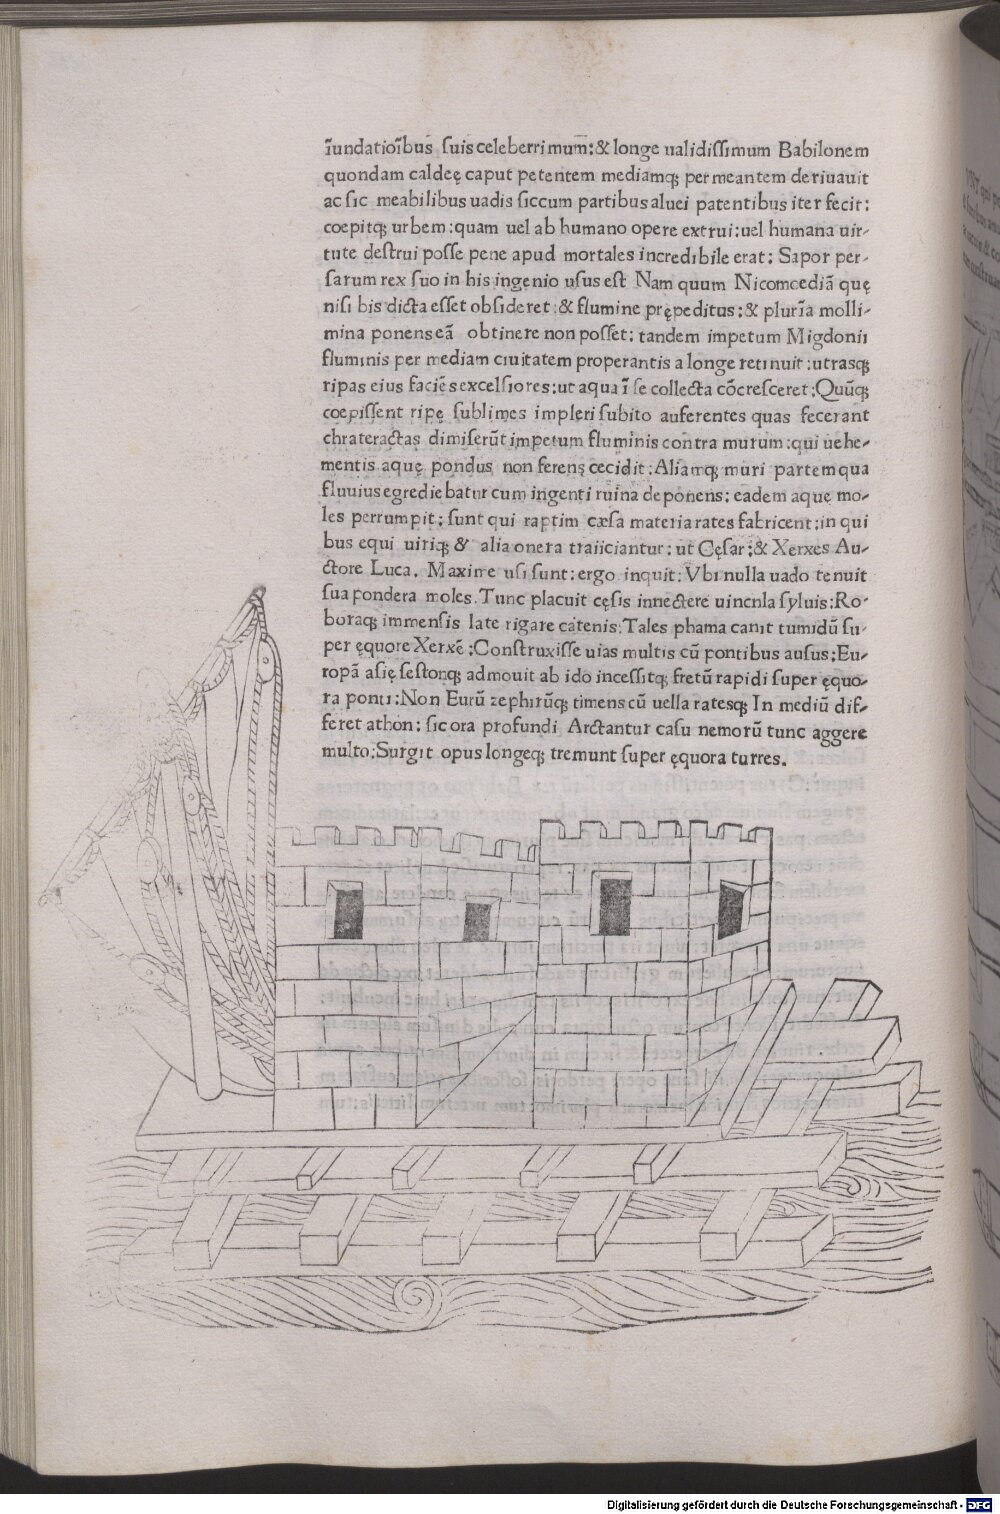 ĩundatioĩbus suis celeberrimum:& longe ualidissimum Babilonem
quondam caldeę caput petentem mediamq; permeantem deriuauit
ac sic meabilibus uadis siccum partibus aluei patentibus iter fecit:
coepitq; urbem:quam uel ab humano opere extrui:uel humana uir-
tute destrui posse pene apud mortales incredibile erat; Sapor per-
sarum rex suo in his ingenio usus est Nam quum Nicomoediã quę
nisi bis dicta esset obsideret:& flumine prępeditus:& plurĩa molli-
mina ponens eã obtinere non posset: tandem impetum Migdonii
fluminis per mediam ciuitatem properantis a longe retinuit:utrasq;
ripas eius faciẽs excelsiores:ut aqua ĩ se collecta cõcresceret:Quũq;
coepissent ripę sublimes impleri subito auferentes quas fecerant
chrateractas dimiserũt impetum fluminis contra murum:qui uehe-
mentis aquę pondus non ferens cecidit:Aliamq; muri partem qua
fluuius egrediebatur cum ingenti ruina deponens: eadem aquę mo-
les perrumpit: sunt qui raptim cæsa materia rates fabricent:in qui
bus equi uiriq; & alia onera traiiciantur: ut Cęsar:& Xerxes Au-
ctore Luca. Maxime usi sunt: ergo inquit: Vbi nulla uado tenuit
sua pondera moles. Tunc placuit cęsis innectere uincnla syluis:Ro-
boraq; immensis late rigare catenis:Tales phama canit tumidũ su-
per ęquore Xerxẽ:Construxisse uias multis cũ pontibus ausus:Eu-
ropã asię sestonq; admouit ab ido incessitq; fretũ rapidi super ęquo-
ra ponti:Non Eurũ zephirũq; timens cũ uella ratesq; In mediũ dif-
feret athon: sic ora profundi Arctantur casu nemorũ tunc aggere
multo:Surgit opus longeq; tremunt super ęquora turres.
Digitalisierung gefördert durch die Deutsche Forschungsgemeinschaft - DFG